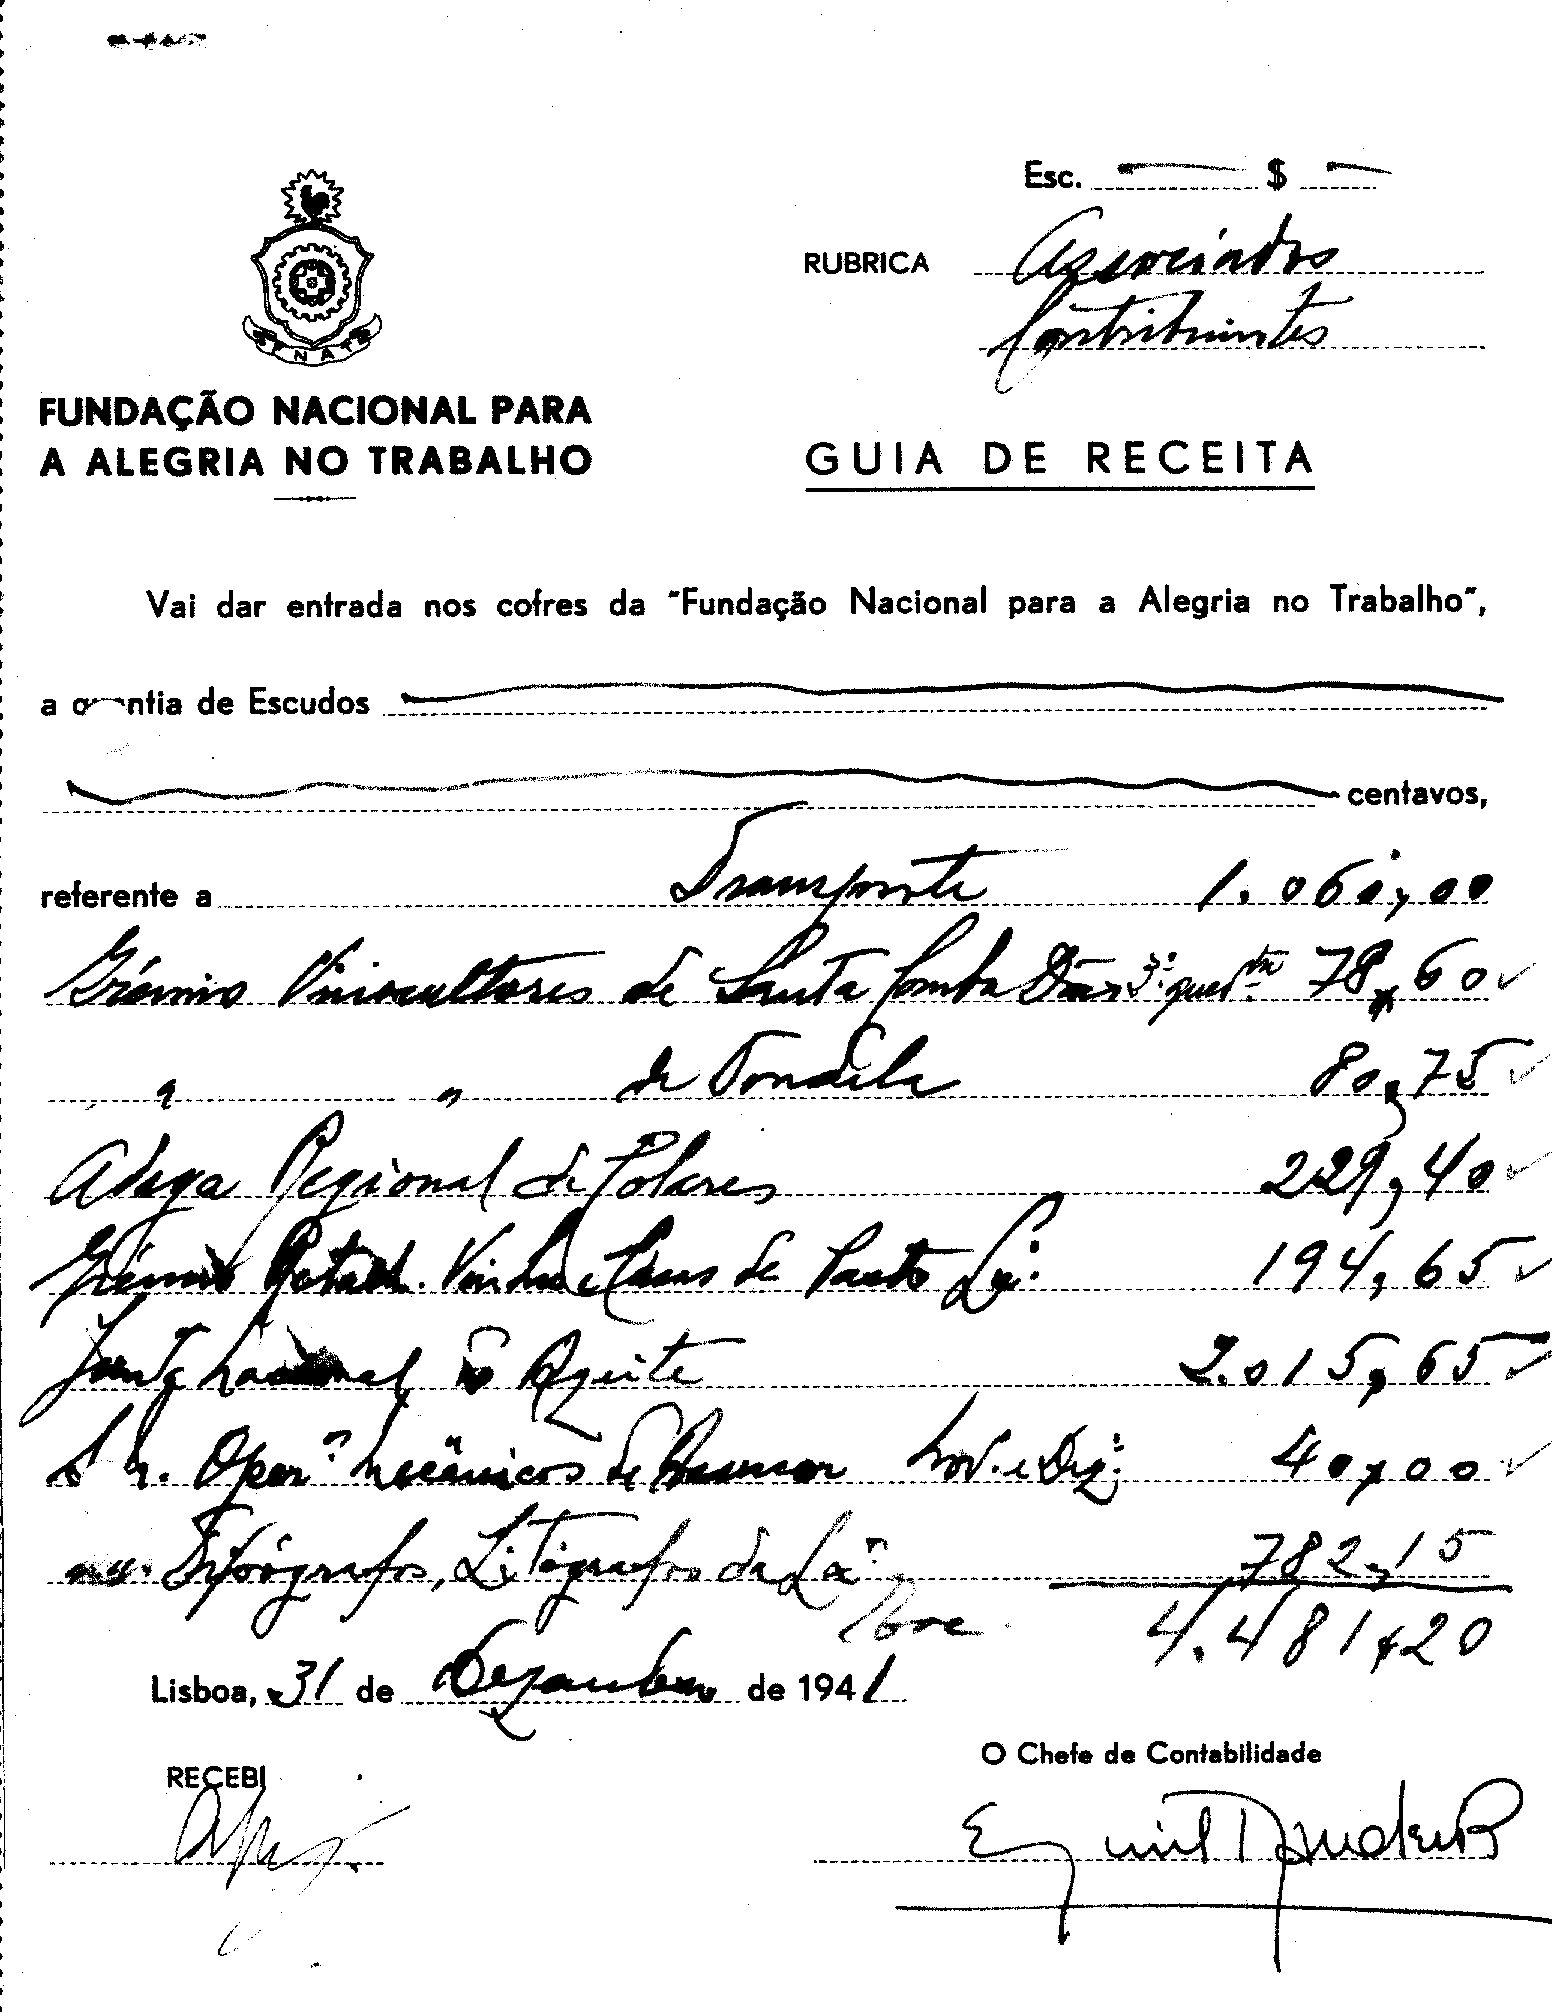 Esc. — $ —
RUBRICA Associados
Contribuintes
FENAT
FUNDAÇÃO NACIONAL PARA
A ALEGRIA NO TRABALHO
GUIA DE RECEITA
Vai dar entrada nos cofres da "Fundação Nacional para a Alegria no Trabalho",
a quantia de Escudos
centavos,
referente a Transporte 1.060,00
Grémio Vinicultores de Santa Comba Dão 3º 78,60
" " de Tondela 80,75
Adega Regional de Colares 229,40
Grémio Retalh. Vinhos e Casas de Pasto Lxª 194,65
Junta Nacional do Azeite 2.015,65
S. N. Oper. Mecânicos de Nov. e Dez. 40,00
Tipógrafos, Litógrafos da Lxª 782,15
4.481,20
Lisboa, 31 de Dezembro de 1941
RECEBI
O Chefe de Contabilidade